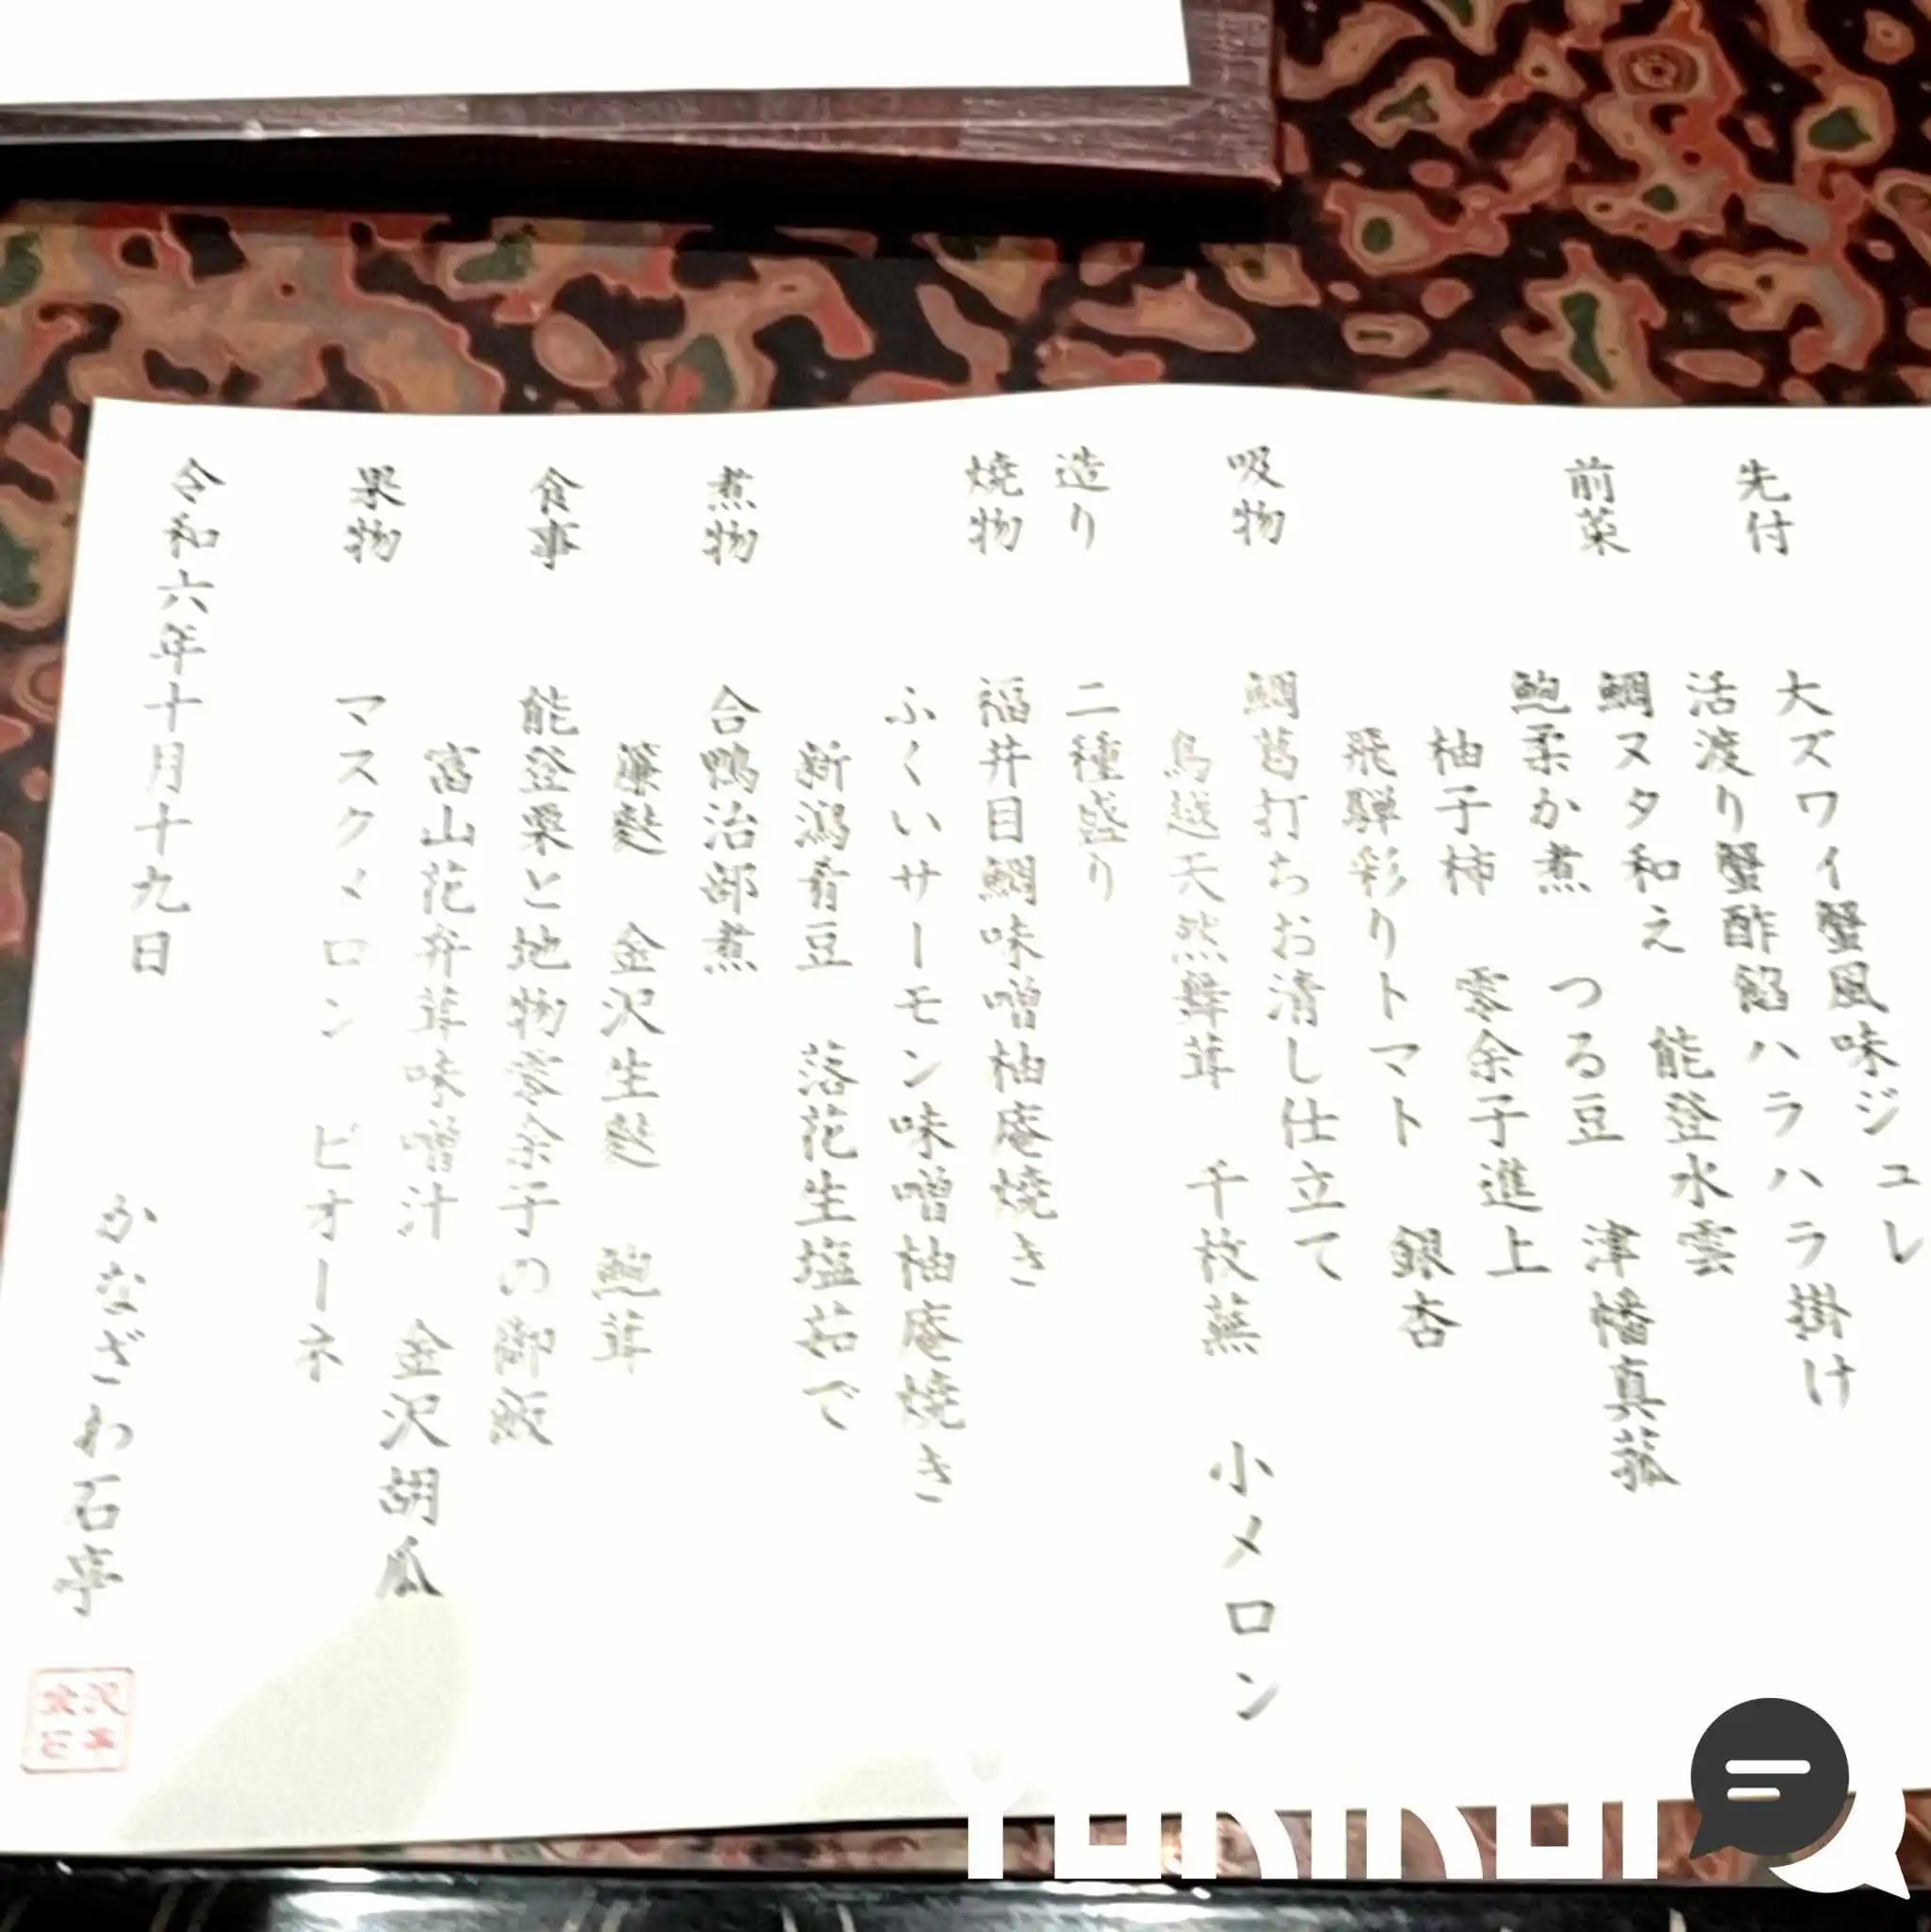 先付
大ズワイ蟹風味ジュレ
活渡り蟹酢餡ハラハラ掛け
前菜
鯛ヌタ和え 能登水雲
鮑柔か煮 つる豆 津幡真菰
柚子柿 零余子進上
飛騨彩りトマト 銀杏
吸物
鯛葛打ちお清し仕立て
鳥越天然舞茸 千枚蕪 小メロン
造り
二種盛り
焼物
福井目鯛味噌柚庵焼き
ふくいサーモン味噌柚庵焼き
新潟青豆 落花生塩茹で
煮物
合鴨治部煮
簾麩 金沢生麩 鮑茸
食事
能登栗と地物零余子の御飯
富山花弁茸味噌汁 金沢胡瓜
果物
マスクメロン ピオーネ
令和六年十月十九日
かなざわ石亭